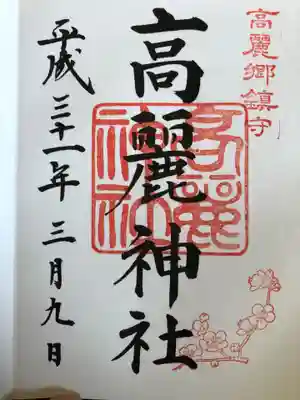 高麗郷鎮守
高麗神社
平成三十一年三月九日
高麗
神社